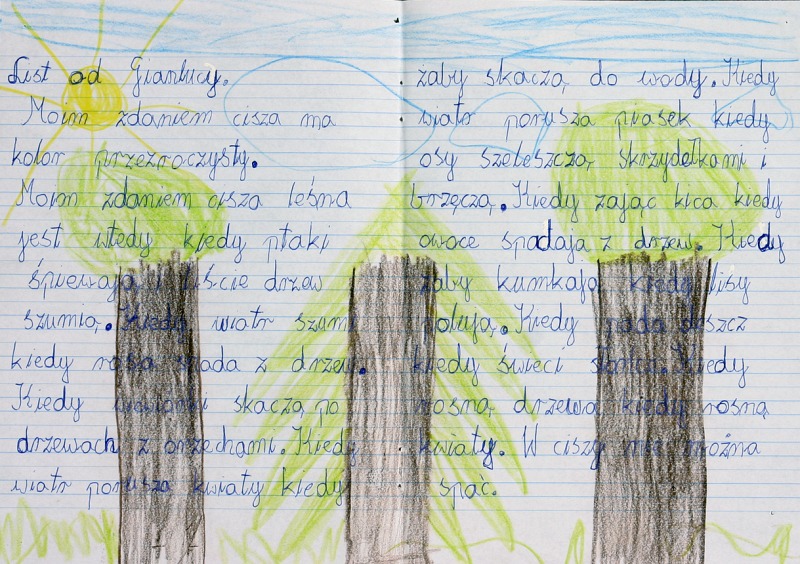 List od Gianlucy.
Moim zdaniem cisza ma
kolor przezroczysty.
Moim zdaniem cisza leśna
jest wtedy kiedy ptaki
śpiewają i liście drzew
szumią. Kiedy wiatr szumi
kiedy rosa spada z drzew.
Kiedy wiewiórki skaczą po
drzewach z orzechami. Kiedy
wiatr porusza kwiaty kiedy
żaby skaczą do wody. Kiedy
wiatr porusza piasek kiedy
osy szeleszczą skrzydełkami i
brzęczą. Kiedy zając kica kiedy
owoce spadają z drzew. Kiedy
żaby kumkają kiedy lisy
polują. Kiedy pada deszcz
kiedy świeci słońce. Kiedy
rosną drzewa kiedy rosną
kwiaty. W ciszy nie można
spać.